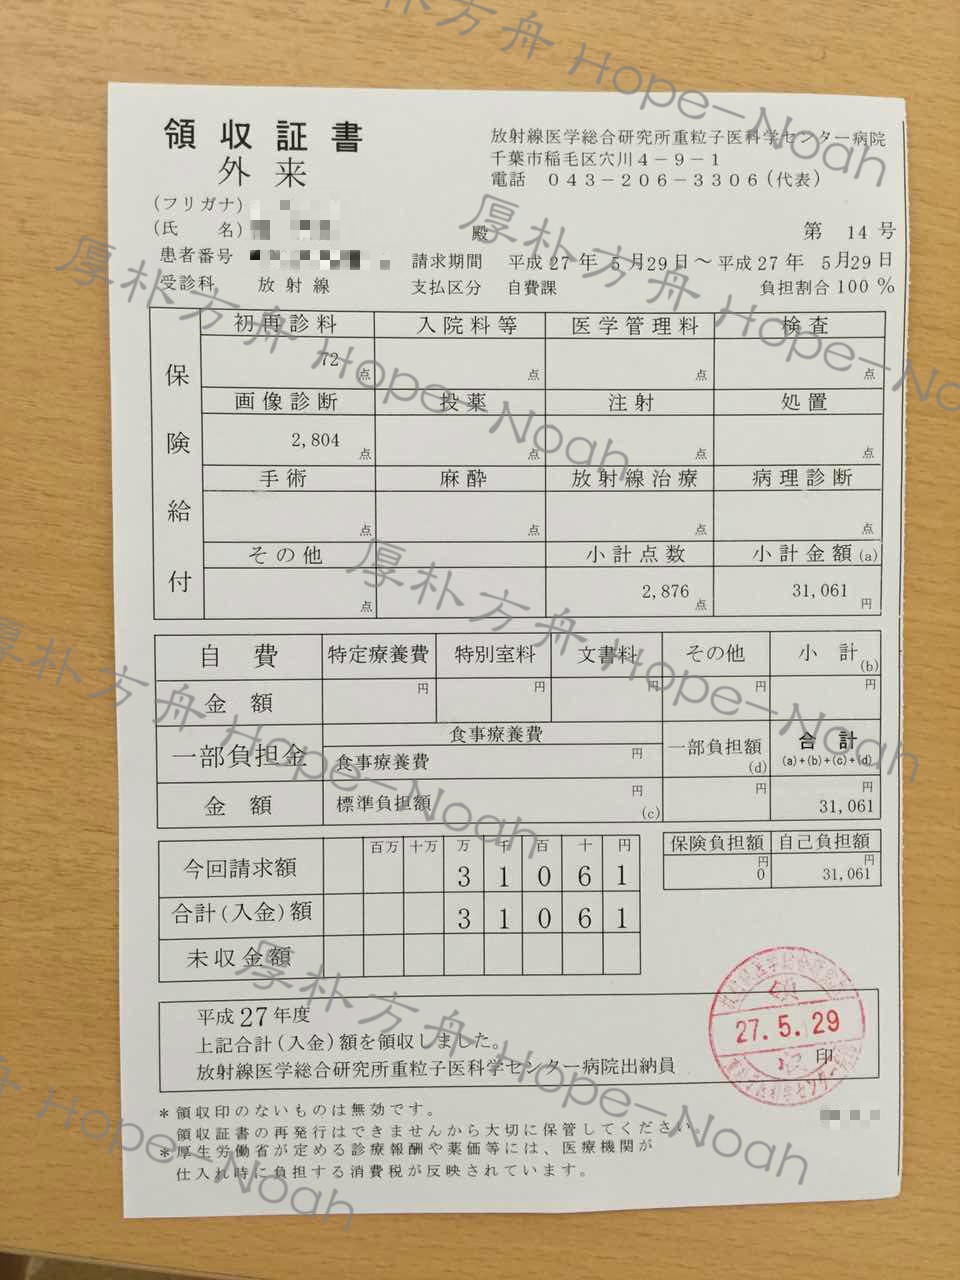 領収証書
外来
放射線医学総合研究所重粒子医科学センター病院
千葉市稲毛区穴川4-9-1
電話 043-206-3306(代表)
(フリガナ)
(氏 名) 殿 第 14号
患者番号 請求期間 平成27年 5月29日～平成27年 5月29日
受診科 放射線 支払区分 自費課 負担割合100%
保険給付
初再診料 入院料等 医学管理料 検査
72点 点 点 点
画像診断 投薬 注射 処置
2,804点 点 点 点
手術 麻酔 放射線治療 病理診断
点 点 点 点
その他 小計点数 小計金額(a)
点 2,876点 31,061円
自費 特定療養費 特別室料 文書料 その他 小計(b)
金額 円 円 円 円 円
一部負担金 食事療養費 一部負担額(d) 合計
食事療養費 円 (a)+(b)+(c)+(d)
金額 標準負担額 円(c) 円 円
31,061
百万 十万 万 千 百 十 円
今回請求額 3 1 0 6 1
合計(入金)額 3 1 0 6 1
未収金額
保険負担額 自己負担額
円 円
0 31,061
平成27年度
上記合計(入金)額を領収しました。
放射線医学総合研究所重粒子医科学センター病院出納員 印
27.5.29
*領収印のないものは無効です。
領収証書の再発行はできませんから大切に保管してください。
*厚生労働省が定める診療報酬や薬価等には、医療機関が
仕入れ時に負担する消費税が反映されています。
厚朴方舟 Hope-Noah
厚朴方舟 Hope-Noah
厚朴方舟 Hope-Noah
厚朴方舟 Hope-Noah
厚朴方舟 Hope-Noah
厚朴方舟 Hope-Noah